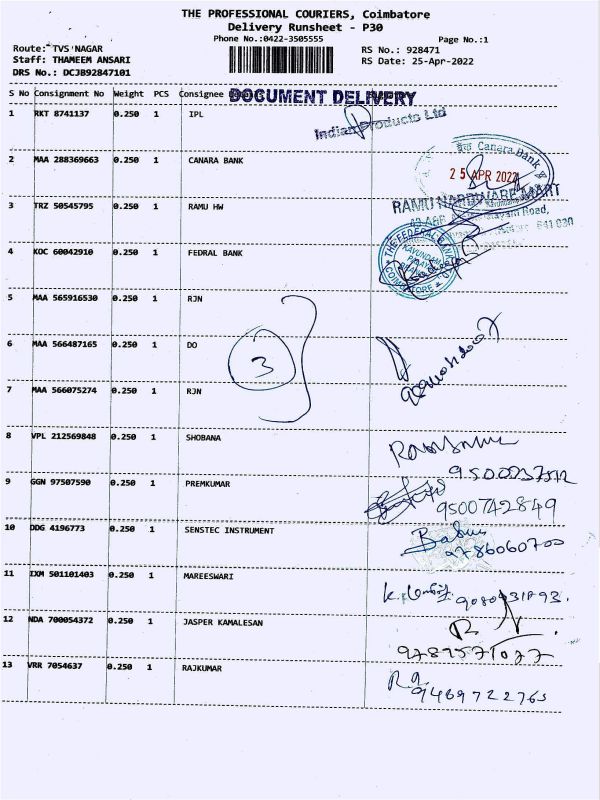 THE PROFESSIONAL COURIERS, Coimbatore
Delivery Runsheet - P30
Phone No.:0422-3505555
Page No.:1
Route: TVS NAGAR
RS No.: 928471
Staff: THAMEEM ANSARI
RS Date: 25-Apr-2022
DRS No.: DCJB92847101
S No Consignment No Weight PCS Consignee
DOCUMENT DELIVERY
1 RKT 8741137 0.250 1 IPL
Indian Products Ltd
2 MAA 288369663 0.250 1 CANARA BANK
Canara Bank
25 APR 2022
RAMU HARDWARE MART
3 TRZ 50545795 0.250 1 RAMU HW
Road,
641 030
4 KOC 60042910 0.250 1 FEDRAL BANK
THE FEDERAL BANK
COIMBATORE
5 MAA 565916530 0.250 1 RJN
6 MAA 566487165 0.250 1 DO
3
7 MAA 566075274 0.250 1 RJN
8 VPL 212569848 0.250 1 SHOBANA
9 GGN 97507590 0.250 1 PREMKUMAR
9500742849
10 DDG 4196773 0.250 1 SENSTEC INSTRUMENT
Babu
11 IXM 501101403 0.250 1 MAREESWARI
12 NDA 700054372 0.250 1 JASPER KAMALESAN
9789571077
13 VRR 7054637 0.250 1 RAJKUMAR
9489722765